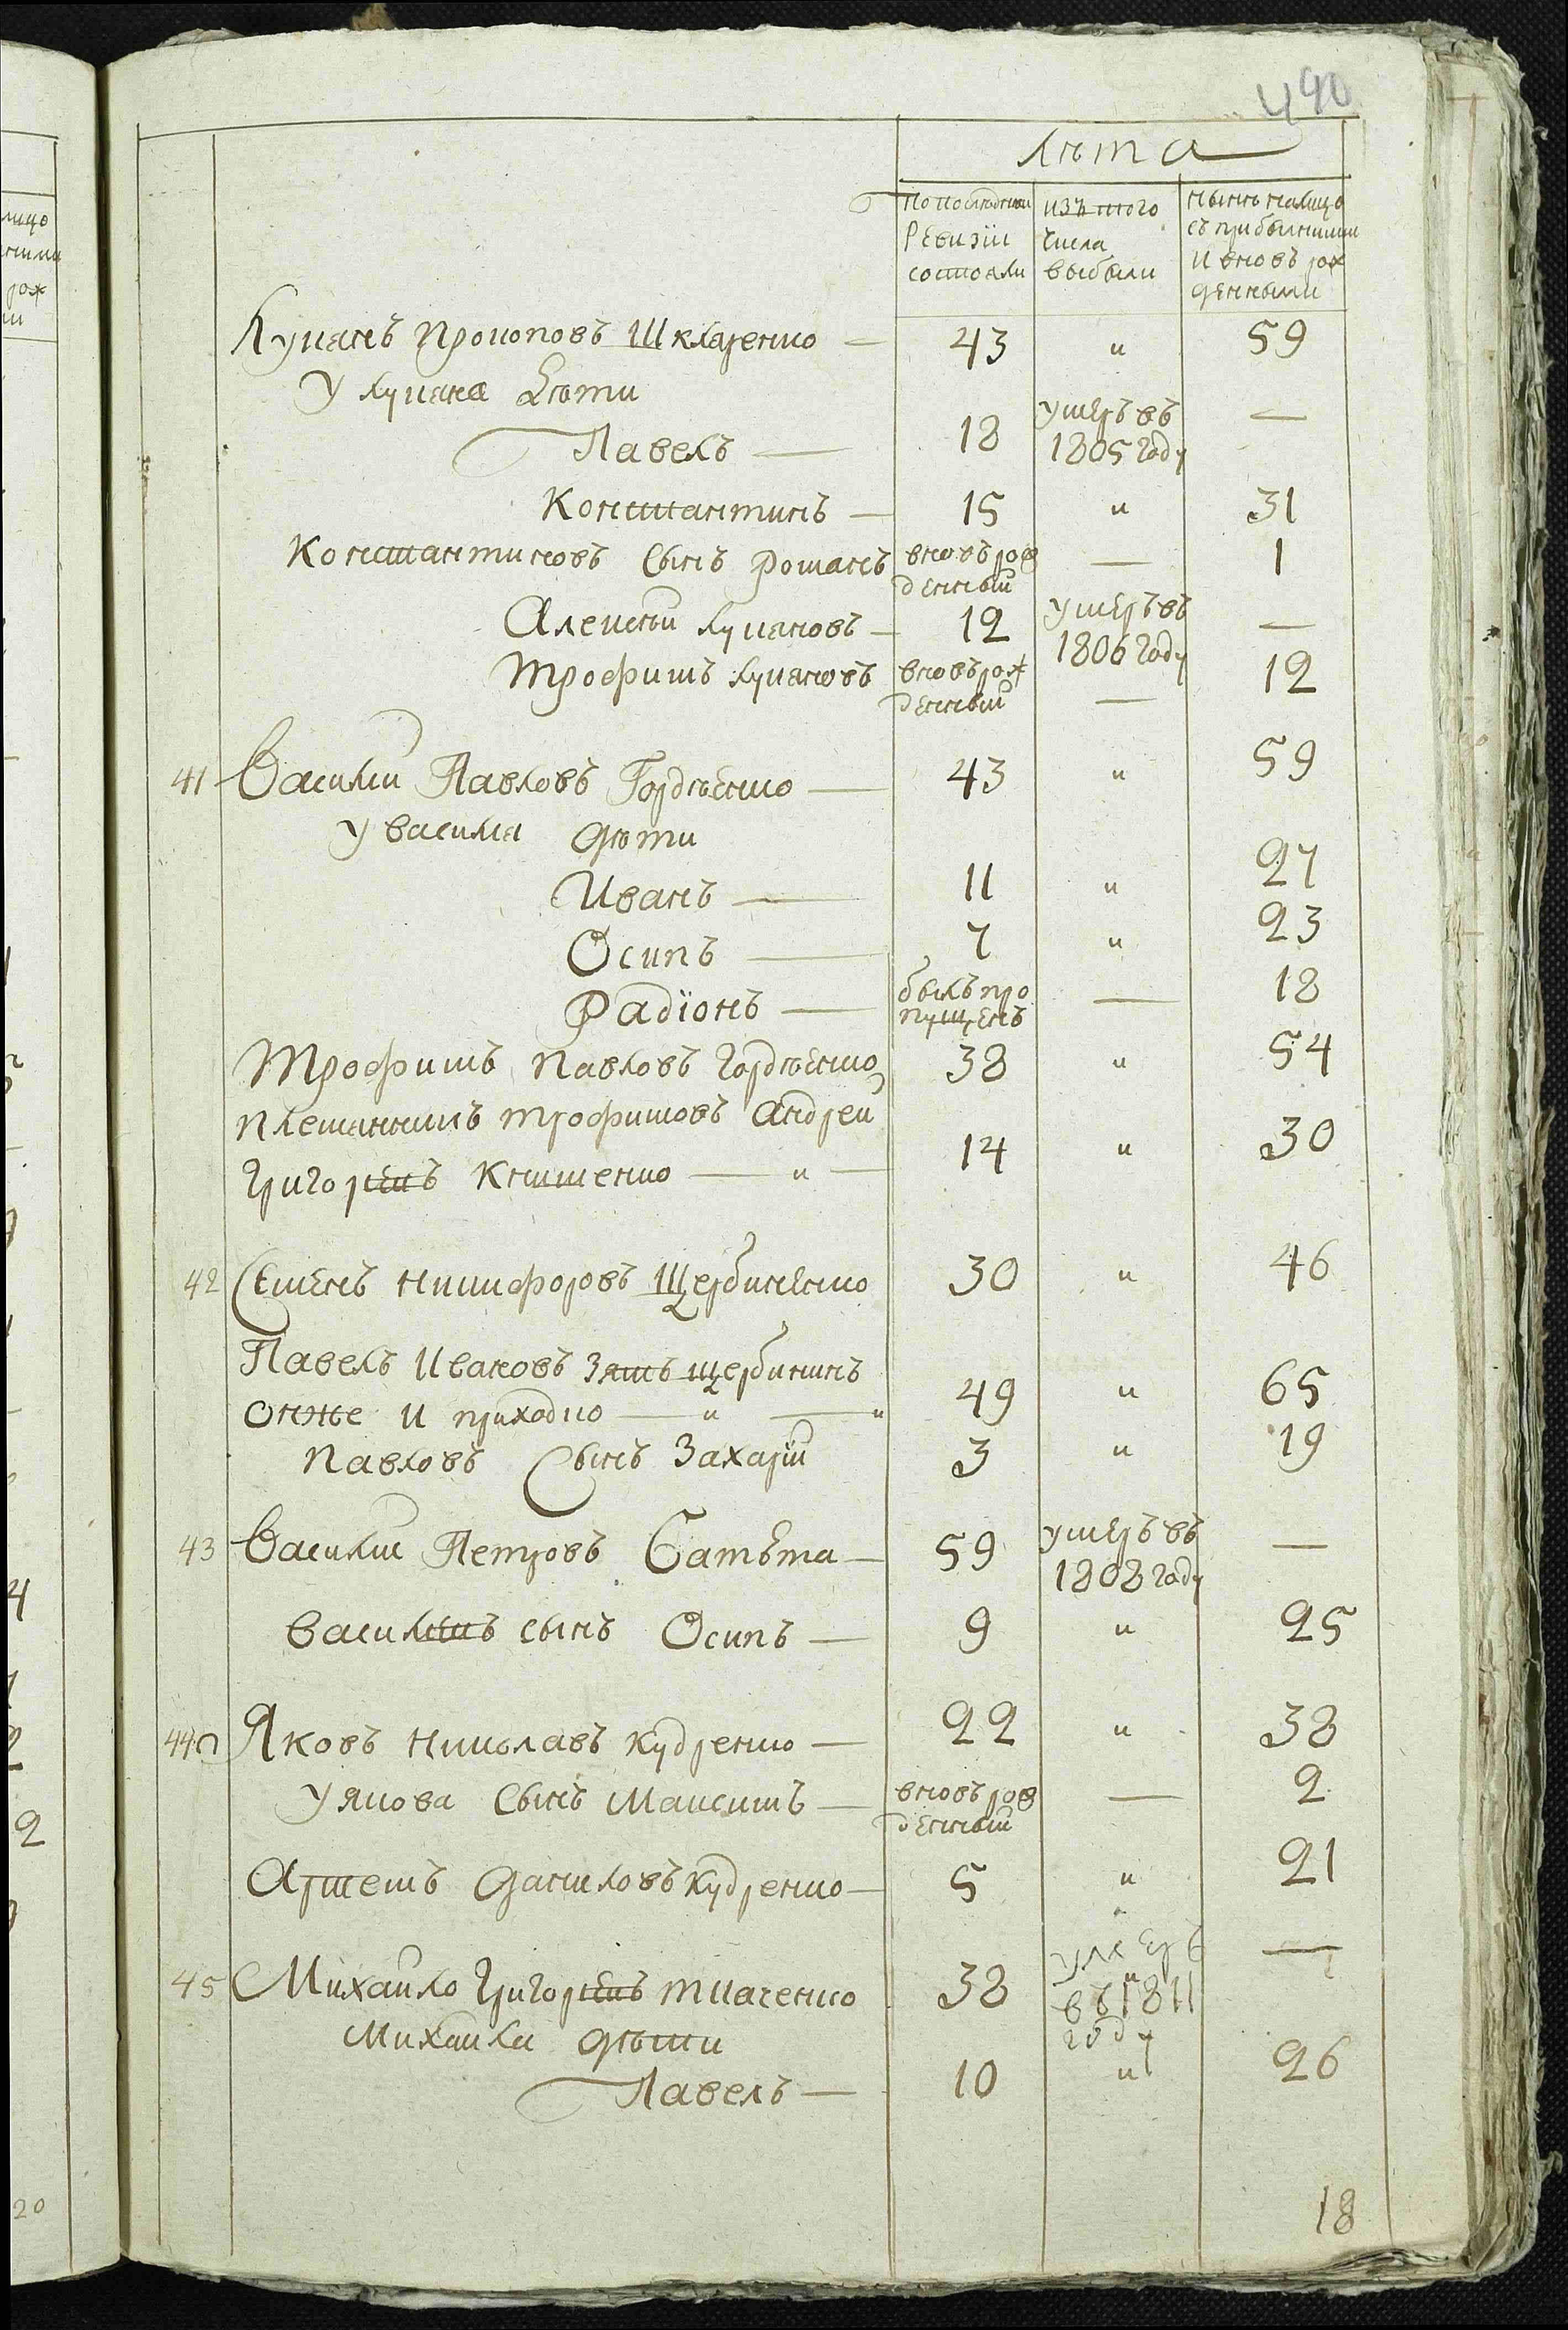 490
Лѣта
По последней Ревизіи состояли
изъ того числа выбыли
нынѣ налицо съ прибылими и вновь рожденными
Лукянъ Прокоповъ Шкляренко — 43 " 59
У Лукяна дѣти
Павелъ — 18 умеръ въ 1805 году —
Константинъ — 15 " 31
Константиновъ сынъ Романъ вновь рожденный — 1
Алексѣй Лукяновъ — 12 умеръ въ 1806 году —
Трофимъ Лукяновъ вновь рожденный — 12
41 Василий Павловъ Гордѣенко — 43 " 59
У Василия дѣти
Иванъ — 11 " 27
Осипъ — 7 " 23
Радіонъ — былъ пропущенъ — 18
Трофимъ Павловъ Гордѣенко 38 " 54
Племянникъ Трофимовъ Андрей
Григорьевъ Книшенко — " — 14 " 30
42 Семенъ Никифоровъ Щербиненко 30 " 46
Павелъ Ивановъ зять Щербининъ
онже и Приходко — " — " 49 " 65
Павловъ сынъ Захарій 3 " 19
43 Василий Петровъ Батѣта — 59 умеръ въ 1808 году —
Васильевъ сынъ Осипъ — 9 " 25
44 Яковъ Николаевъ Кудренко — 22 " 38
У Якова сынъ Максимъ — вновь рожденный — 2
Артемъ Даниловъ Кудренко — 5 " 21
45 Михайло Григорьевъ Ткаченко 38 умеръ въ 1811 году —
Михайла дѣти
Павелъ — 10 " 26
18
4
2
20